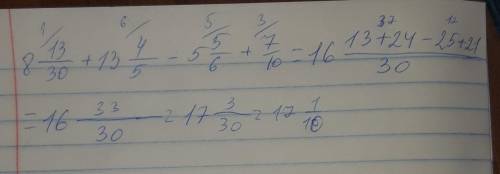 8 13/30 + 13 4/5 - 5 5/6 + 7/10 = 16 (13+24-25+21)/30
= 16 33/30 = 17 3/30 = 17 1/10